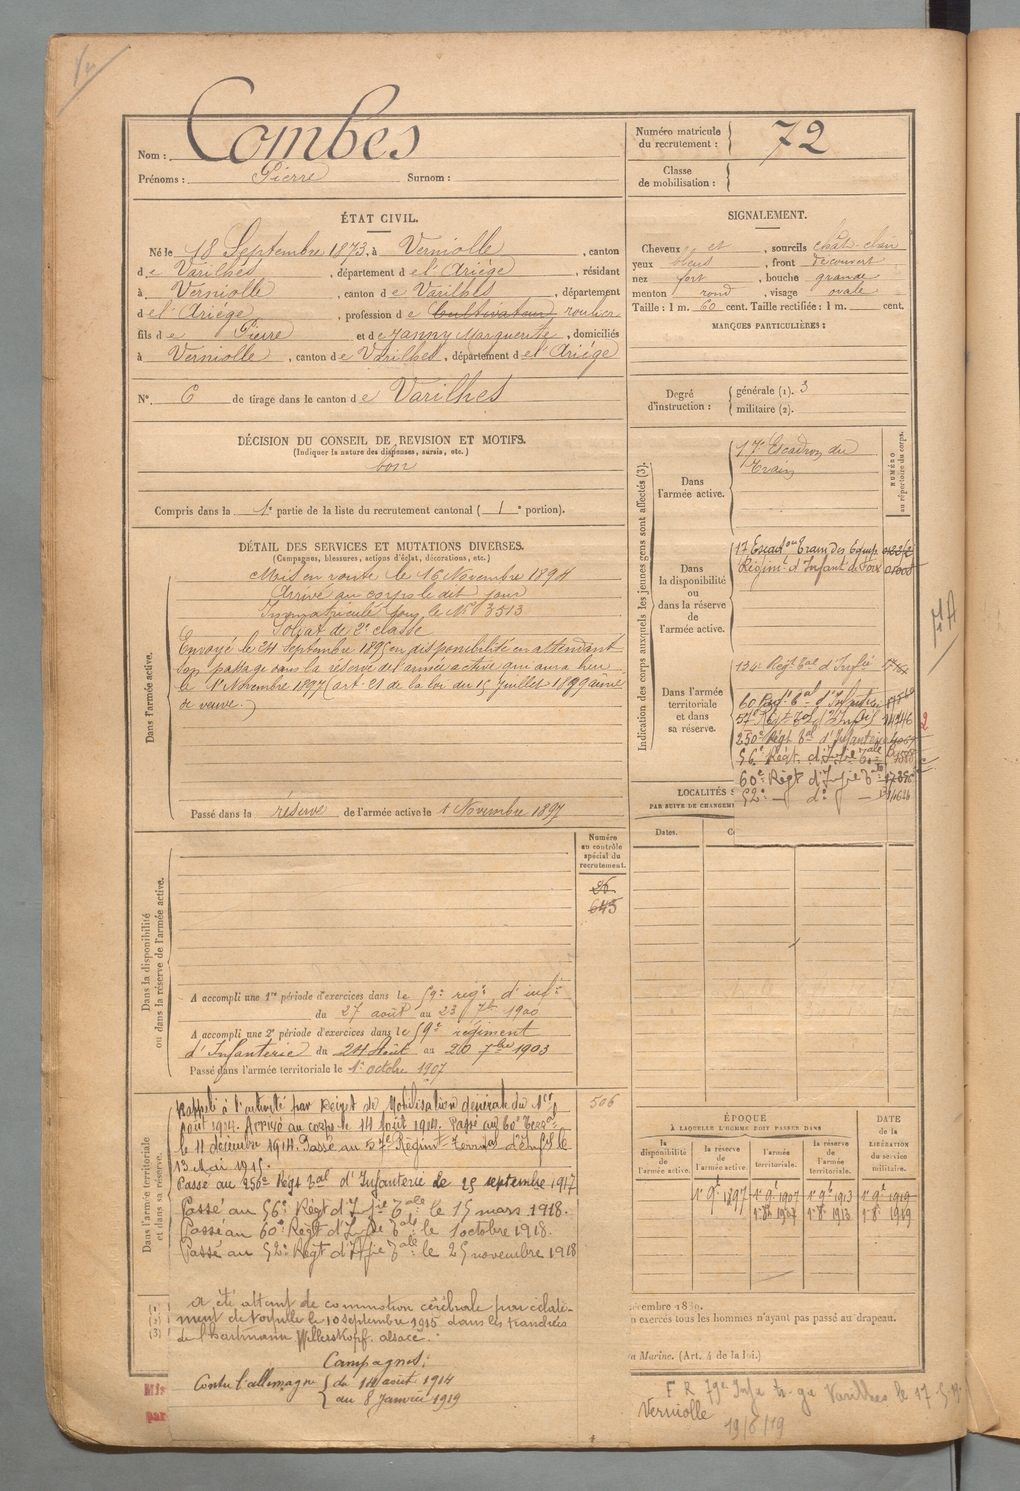 Nom : Combes
Prénoms : Pierre Surnom :
Numéro matricule du recrutement : 72
Classe de mobilisation :
ÉTAT CIVIL.
Né le 18 Septembre 1873, à Verniolle, canton
de Varilhes, département de l'Ariége, résidant
à Verniolle, canton de Varilhes, département
de l'Ariége, profession de Cultivateur roulier
fils de Pierre et de Janny Marguerite, domiciliés
à Verniolle, canton de Varilhes, département de l'Ariége
N°. 6 de tirage dans le canton de Varilhes
DÉCISION DU CONSEIL DE REVISION ET MOTIFS.
(Indiquer la nature des dispenses, sursis, etc.)
bon
Compris dans la 1e partie de la liste du recrutement cantonal (1e portion).
SIGNALEMENT.
Cheveux et, sourcils chât. clair
yeux bleus, front découvert
nez fort, bouche grande
menton rond, visage ovale
Taille : 1 m. 60 cent. Taille rectifiée : 1 m. cent.
MARQUES PARTICULIÈRES :
Degré d'instruction :
générale (1). 3
militaire (2).
DÉTAIL DES SERVICES ET MUTATIONS DIVERSES.
(Campagnes, blessures, actions d'éclat, décorations, etc.)
Dans l'armée active.
Mis en route le 16 Novembre 1894
Arrivé au corps le dit jour
Immatriculé sous le N° 3513
Soldat de 2e classe
Envoyé le 24 Septembre 1895 en disponibilité en attendant
son passage dans la réserve de l'armée active qui aura lieu
le 1er Novembre 1897 (art. 21 de la loi du 15 Juillet 1889 aîné
de veuve.)
Passé dans la réserve de l'armée active le 1 Novembre 1897
Indication des corps auxquels les jeunes gens sont affectés (3).
NUMÉRO au répertoire du corps.
Dans l'armée active.
17e Escadron du
Train
Dans la disponibilité ou dans la réserve de l'armée active.
17 Escadron Train des Equip
Régimt d'Infant de Foix
Dans l'armée territoriale et dans sa réserve.
134 Régt Tal d'Infie
60 Régt Tal d'Infanterie
57e Régt Tal d'Infie
250e Régt Tal d'Infanterie
56e Régt d'Infie Tale
60e Régt d'Infie Tale
52e — do —
LOCALITÉS
PAR SUITE DE CHANGEM
Dates.
Dans la disponibilité ou dans la réserve de l'armée active.
Numéro au contrôle spécial du recrutement.
645
506
A accompli une 1re période d'exercices dans le 59e régt d'infie
du 27 août au 23 7bre 1900
A accompli une 2e période d'exercices dans le 59e régiment
d'Infanterie du 24 Août au 20 7bre 1903
Passé dans l'armée territoriale le 1er octobre 1907
Dans l'armée territoriale et dans sa réserve.
Rappelé à l'activité par Décret de Mobilisation Générale du 1er
Août 1914. Arrivé au corps le 14 Août 1914. Passé au 60e Terral
le 11 décembre 1914. Passé au 57e Régimt Terral d'Infie le
13 Mai 1915.
Passé au 250e Régt Tal d'Infanterie le 25 septembre 1917
Passé au 56e Régt d'Infie Tale le 15 mars 1918.
Passé au 60e Régt d'Infie Tale le 1 octobre 1918.
Passé au 52e Régt d'Infie Tale le 25 novembre 1918
A été atteint de commotion cérébrale par éclate-
ment de torpille le 10 septembre 1915 dans les tranchées
de l'Hartmann Willerskopf. alsace.
Campagnes :
Contre l'allemagne { du 14 août 1914
au 8 Janvier 1919
ÉPOQUE
À LAQUELLE L'HOMME DOIT PASSER DANS
DATE de la LIBÉRATION du service militaire.
la disponibilité de l'armée active.
la réserve de l'armée active
l'armée territoriale.
la réserve de l'armée territoriale.
1er 9e 1897 1er 9e 1907 1er 9e 1913 1er 9e 1919
1er 8e 1907 1er 8e 1913 1er 8e 1919
(1)
(2)
(3)
écembre 1889.
n exercés tous les hommes n'ayant pas passé au drapeau.
a Marine. (Art. 4 de la loi.)
Mis
par
Varilhes le 17
Verniolle
19/6/19